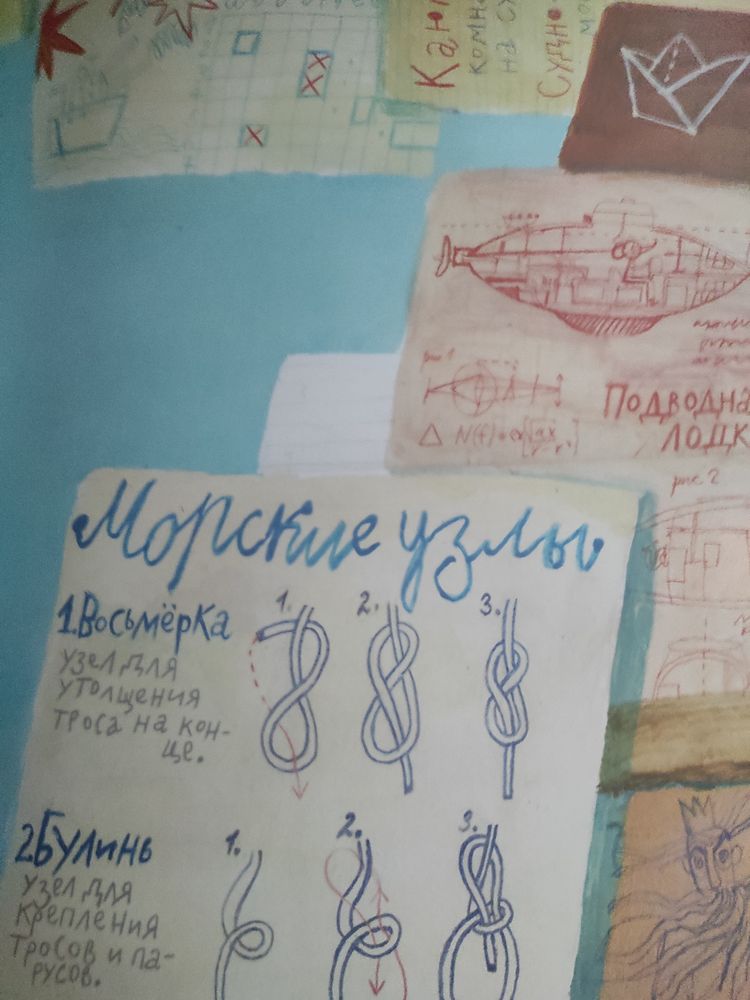 на су
Подводна
лодк
рис 2
Морские узлы
1. Восьмёрка
узел для
утолщения
троса на кон-
це.
1. 2. 3.
2 Булинь
узел для
крепления
тросов и па-
русов.
1. 2. 3.